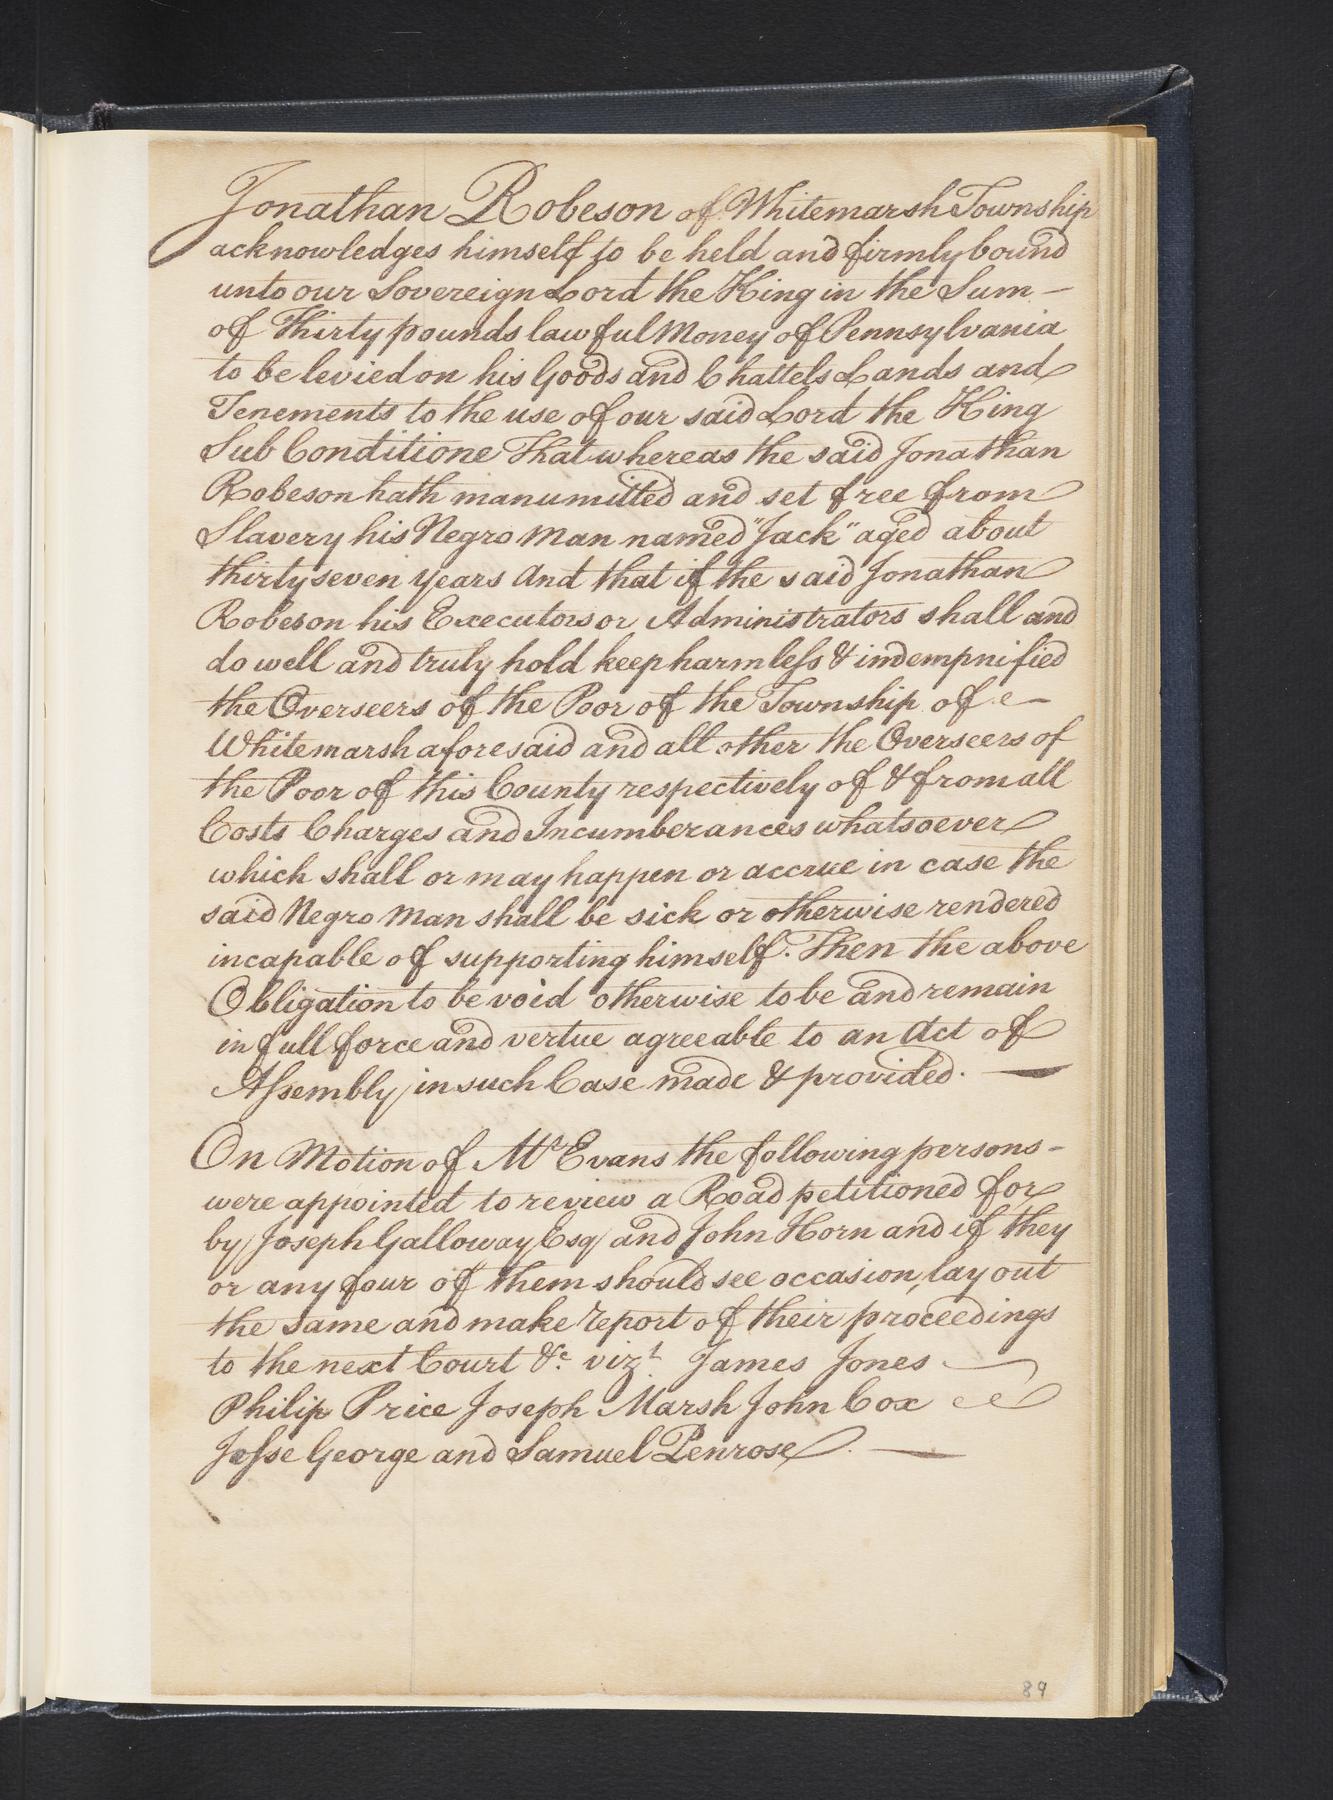 Jonathan Robeson of Whitemarsh Township
acknowledges himself to be held and firmly bound
unto our Sovereign Lord the King in the Sum -
of Thirty pounds lawful Money of Pennsylvania
to be levied on his Goods and Chattels Lands and
Tenements to the use of our said Lord the King
Sub Conditione That whereas the said Jonathan
Robeson hath manumitted and set free from
Slavery his Negro Man named "Jack" aged about
thirty seven years And that if the said Jonathan
Robeson his Executors or Administrators shall and
do well and truly hold keep harmless & indempnified
the Overseers of the Poor of the Township of
Whitemarsh aforesaid and all other the Overseers of
the Poor of this County respectively of & from all
Costs Charges and Incumberances whatsoever
which shall or may happen or accrue in case the
said Negro Man shall be sick or otherwise rendered
incapable of supporting himself. Then the above
Obligation to be void otherwise to be and remain
in full force and vertue agreeable to an Act of
Assembly in such Case made & provided. —
On Motion of Mr Evans the following persons -
were appointed to review a Road petitioned for
by Joseph Galloway Esq and John Horn and if they
or any four of them should see occasion, lay out
the same and make report of their proceedings
to the next Court &c. vizt. James Jones
Philip Price Joseph Marsh John Cox
Jesse George and Samuel Penrose. —
89